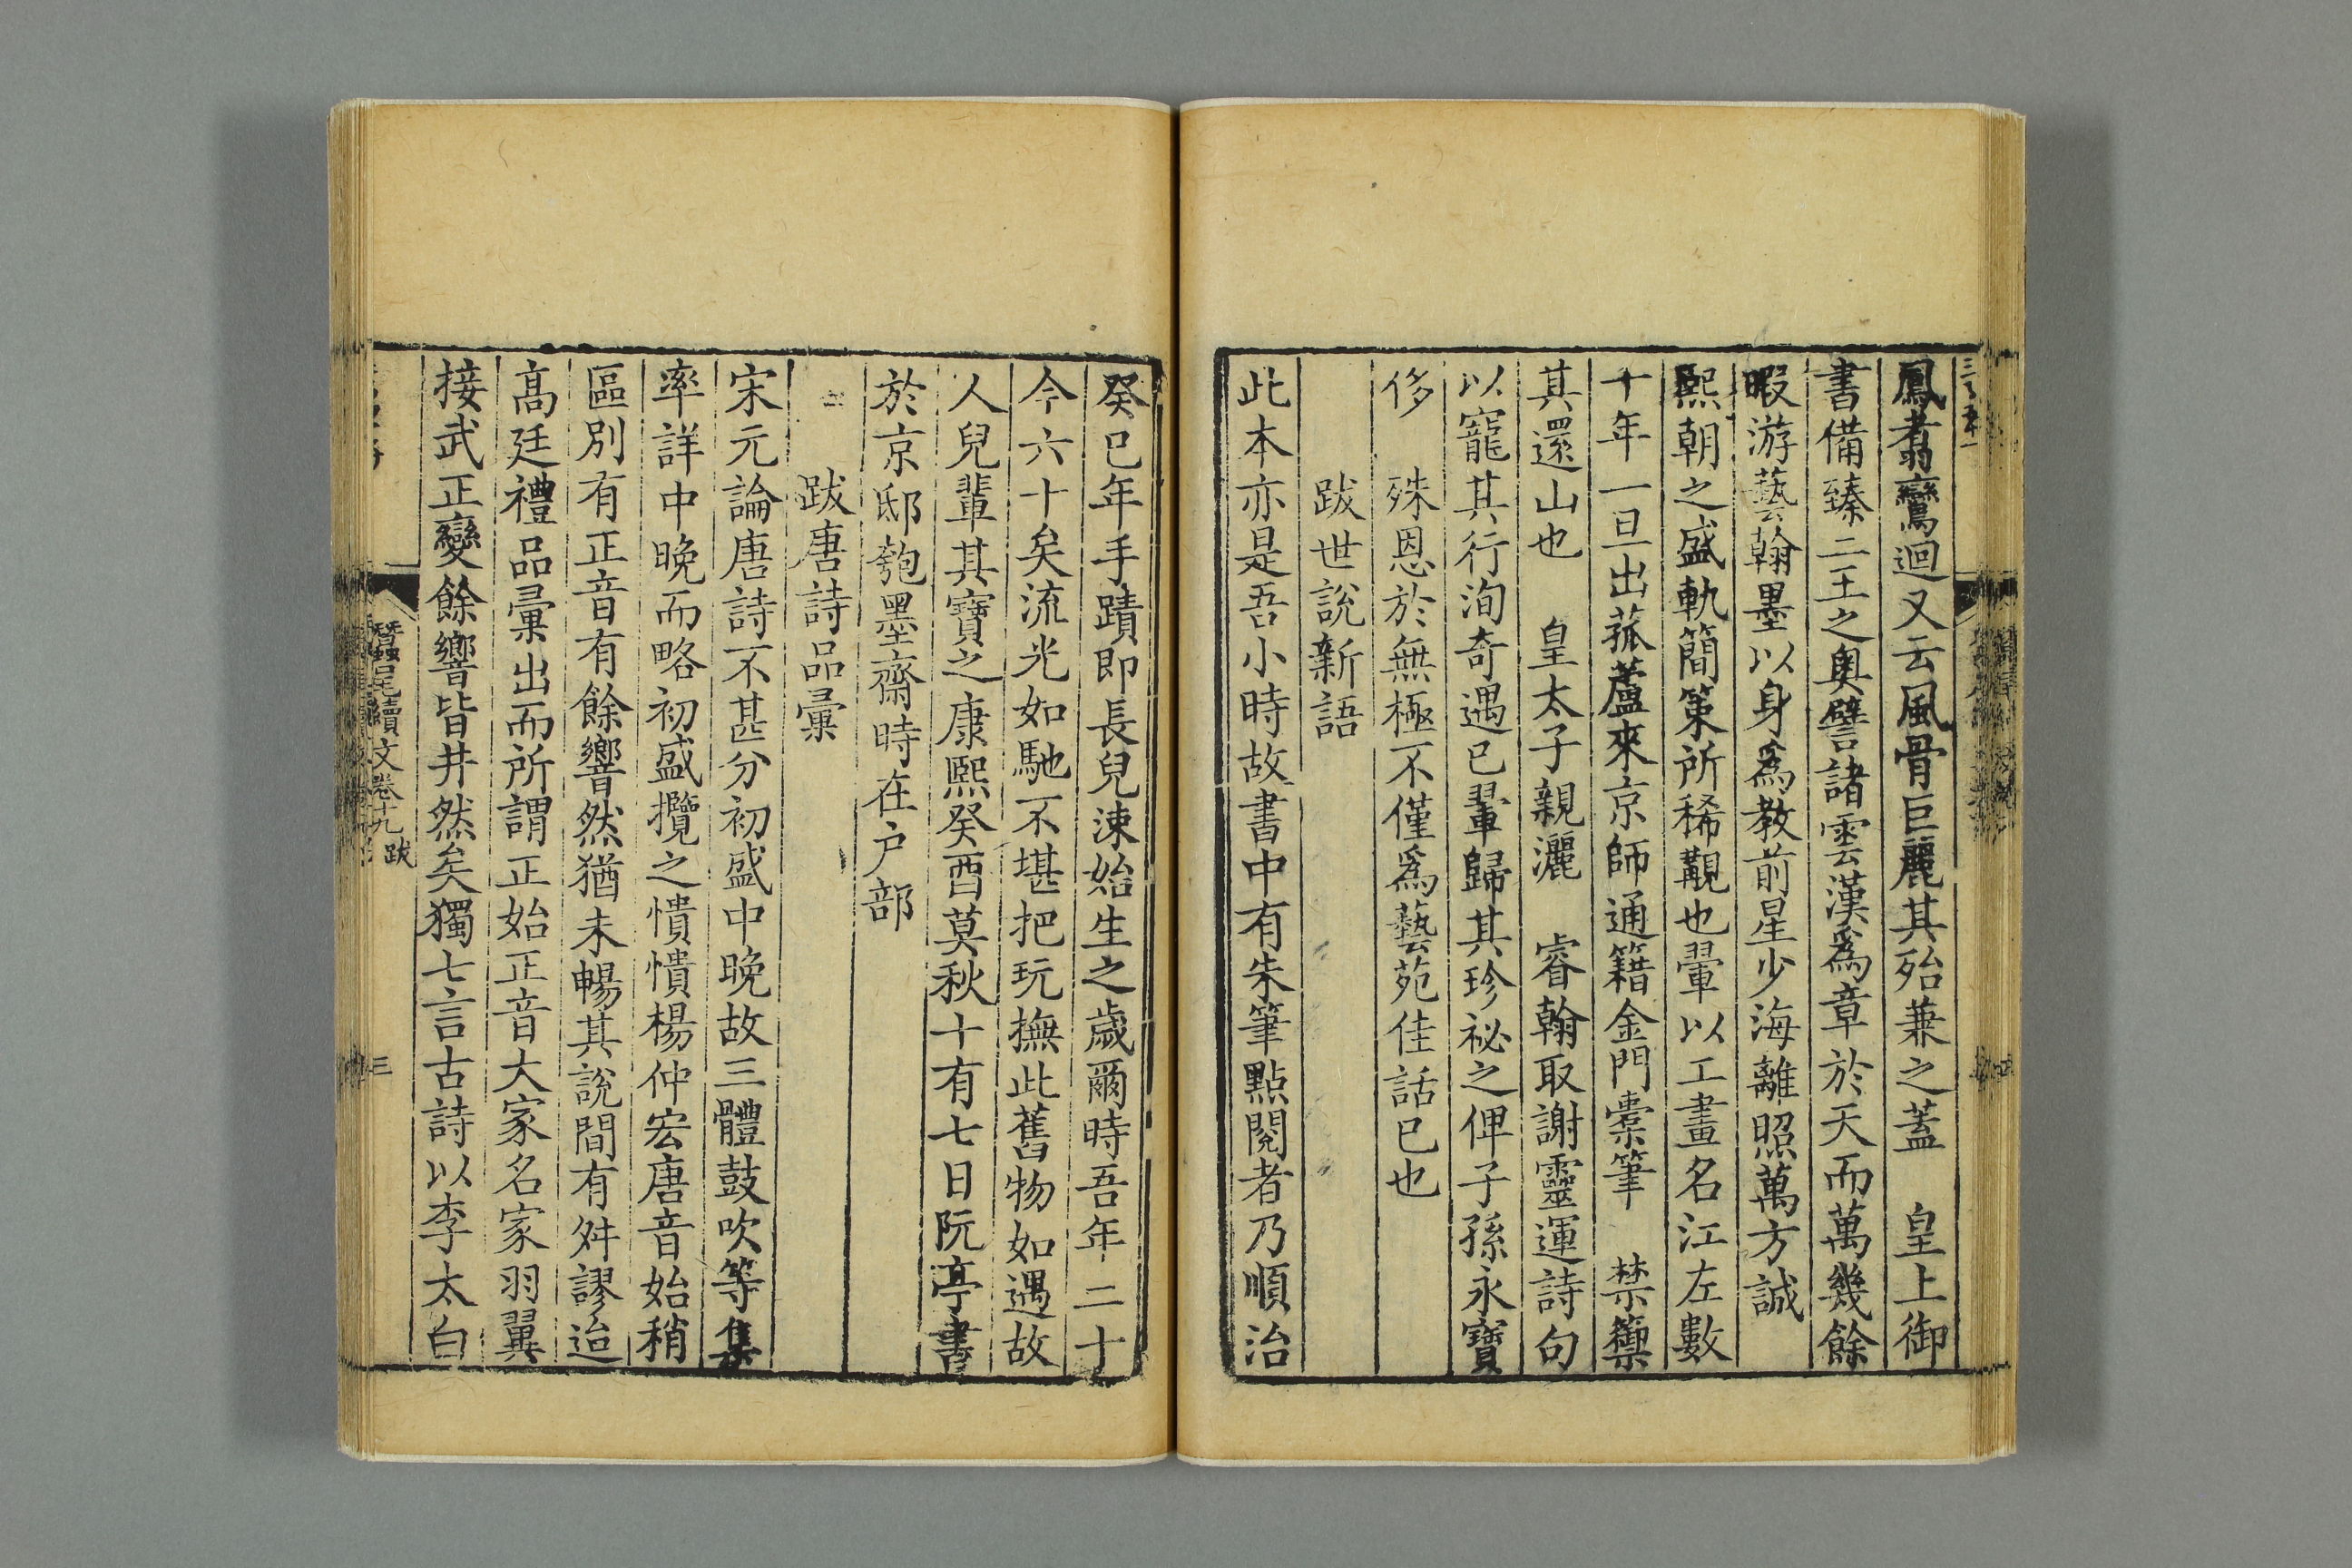 鳳翥鸞迴又云風骨巨麗其殆兼之蓋　皇上御
書備臻二王之奥譬諸雲漢爲章於天而萬幾餘
暇游藝翰墨以身爲教前星少海離照萬方誠
熙朝之盛軌簡策所稀覯也翬以工畫名江左數
十年一旦出菰蘆來京師通籍金門橐筆　禁籞
其還山也　皇太子親灑　睿翰取謝靈運詩句
以寵其行洵奇遇已翬歸其珍祕之俾子孫永寶
侈　殊恩於無極不僅爲藝苑佳話已也
跋世說新語
此本亦是吾小時故書中有朱筆點閱者乃順治
癸巳年手蹟即長兒涑始生之歲爾時吾年二十
今六十矣流光如馳不堪把玩撫此舊物如遇故
人兒輩其寶之康熙癸酉莫秋十有七日阮亭書
於京邸匏墨齋時在户部
跋唐詩品彙
宋元論唐詩不甚分初盛中晚故三體鼓吹等集
率詳中晚而略初盛攬之憒憒楊仲宏唐音始稍
區別有正音有餘響然猶未暢其說間有舛謬迨
高廷禮品彙出而所謂正始正音大家名家羽翼
接武正變餘響皆井然矣獨七言古詩以李太白
蠶尾續文卷十九 跋
三